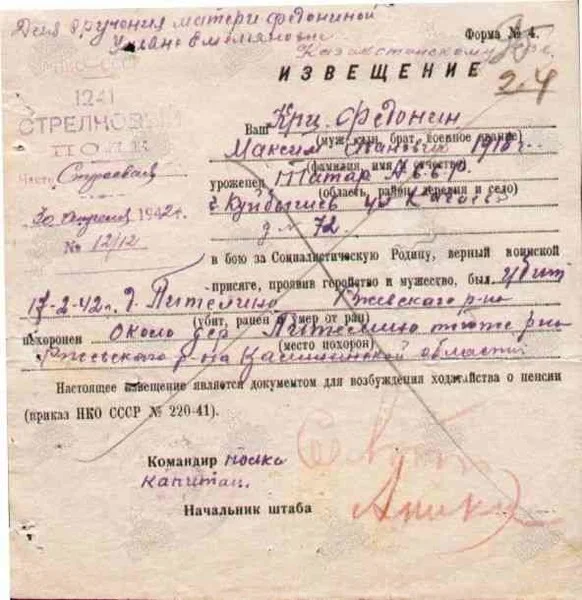 Для вручения матери Федониной
Форма № 4.
Казахстанскому
НКО СССР
ИЗВЕЩЕНИЕ
2.4
1241
СТРЕЛКОВЫЙ
ПОЛК
Часть Строевая
30 апреля 1942 г.
№ 12/12
Ваш Кр-ц Федонин
(муж, сын, брат, военное звание)
Максим Иванович 1918 г.
(фамилия, имя и отчество)
уроженец Татар.
(область, район, деревня и село)
г. Куйбышев ул
д № 72.
в бою за Социалистическую Родину, верный воинской
присяге, проявив геройство и мужество, был убит
17-2-42 г. д. Питемино Ржевского р-на
(убит, ранен и умер от ран)
похоронен около дер. Питемино тоже р-на
(место похорон)
Ржевского р-на Калининской области
Настоящее извещение является документом для возбуждения ходатайства о пенсии
(приказ НКО СССР № 220-41).
Командир полка
капитан
Начальник штаба